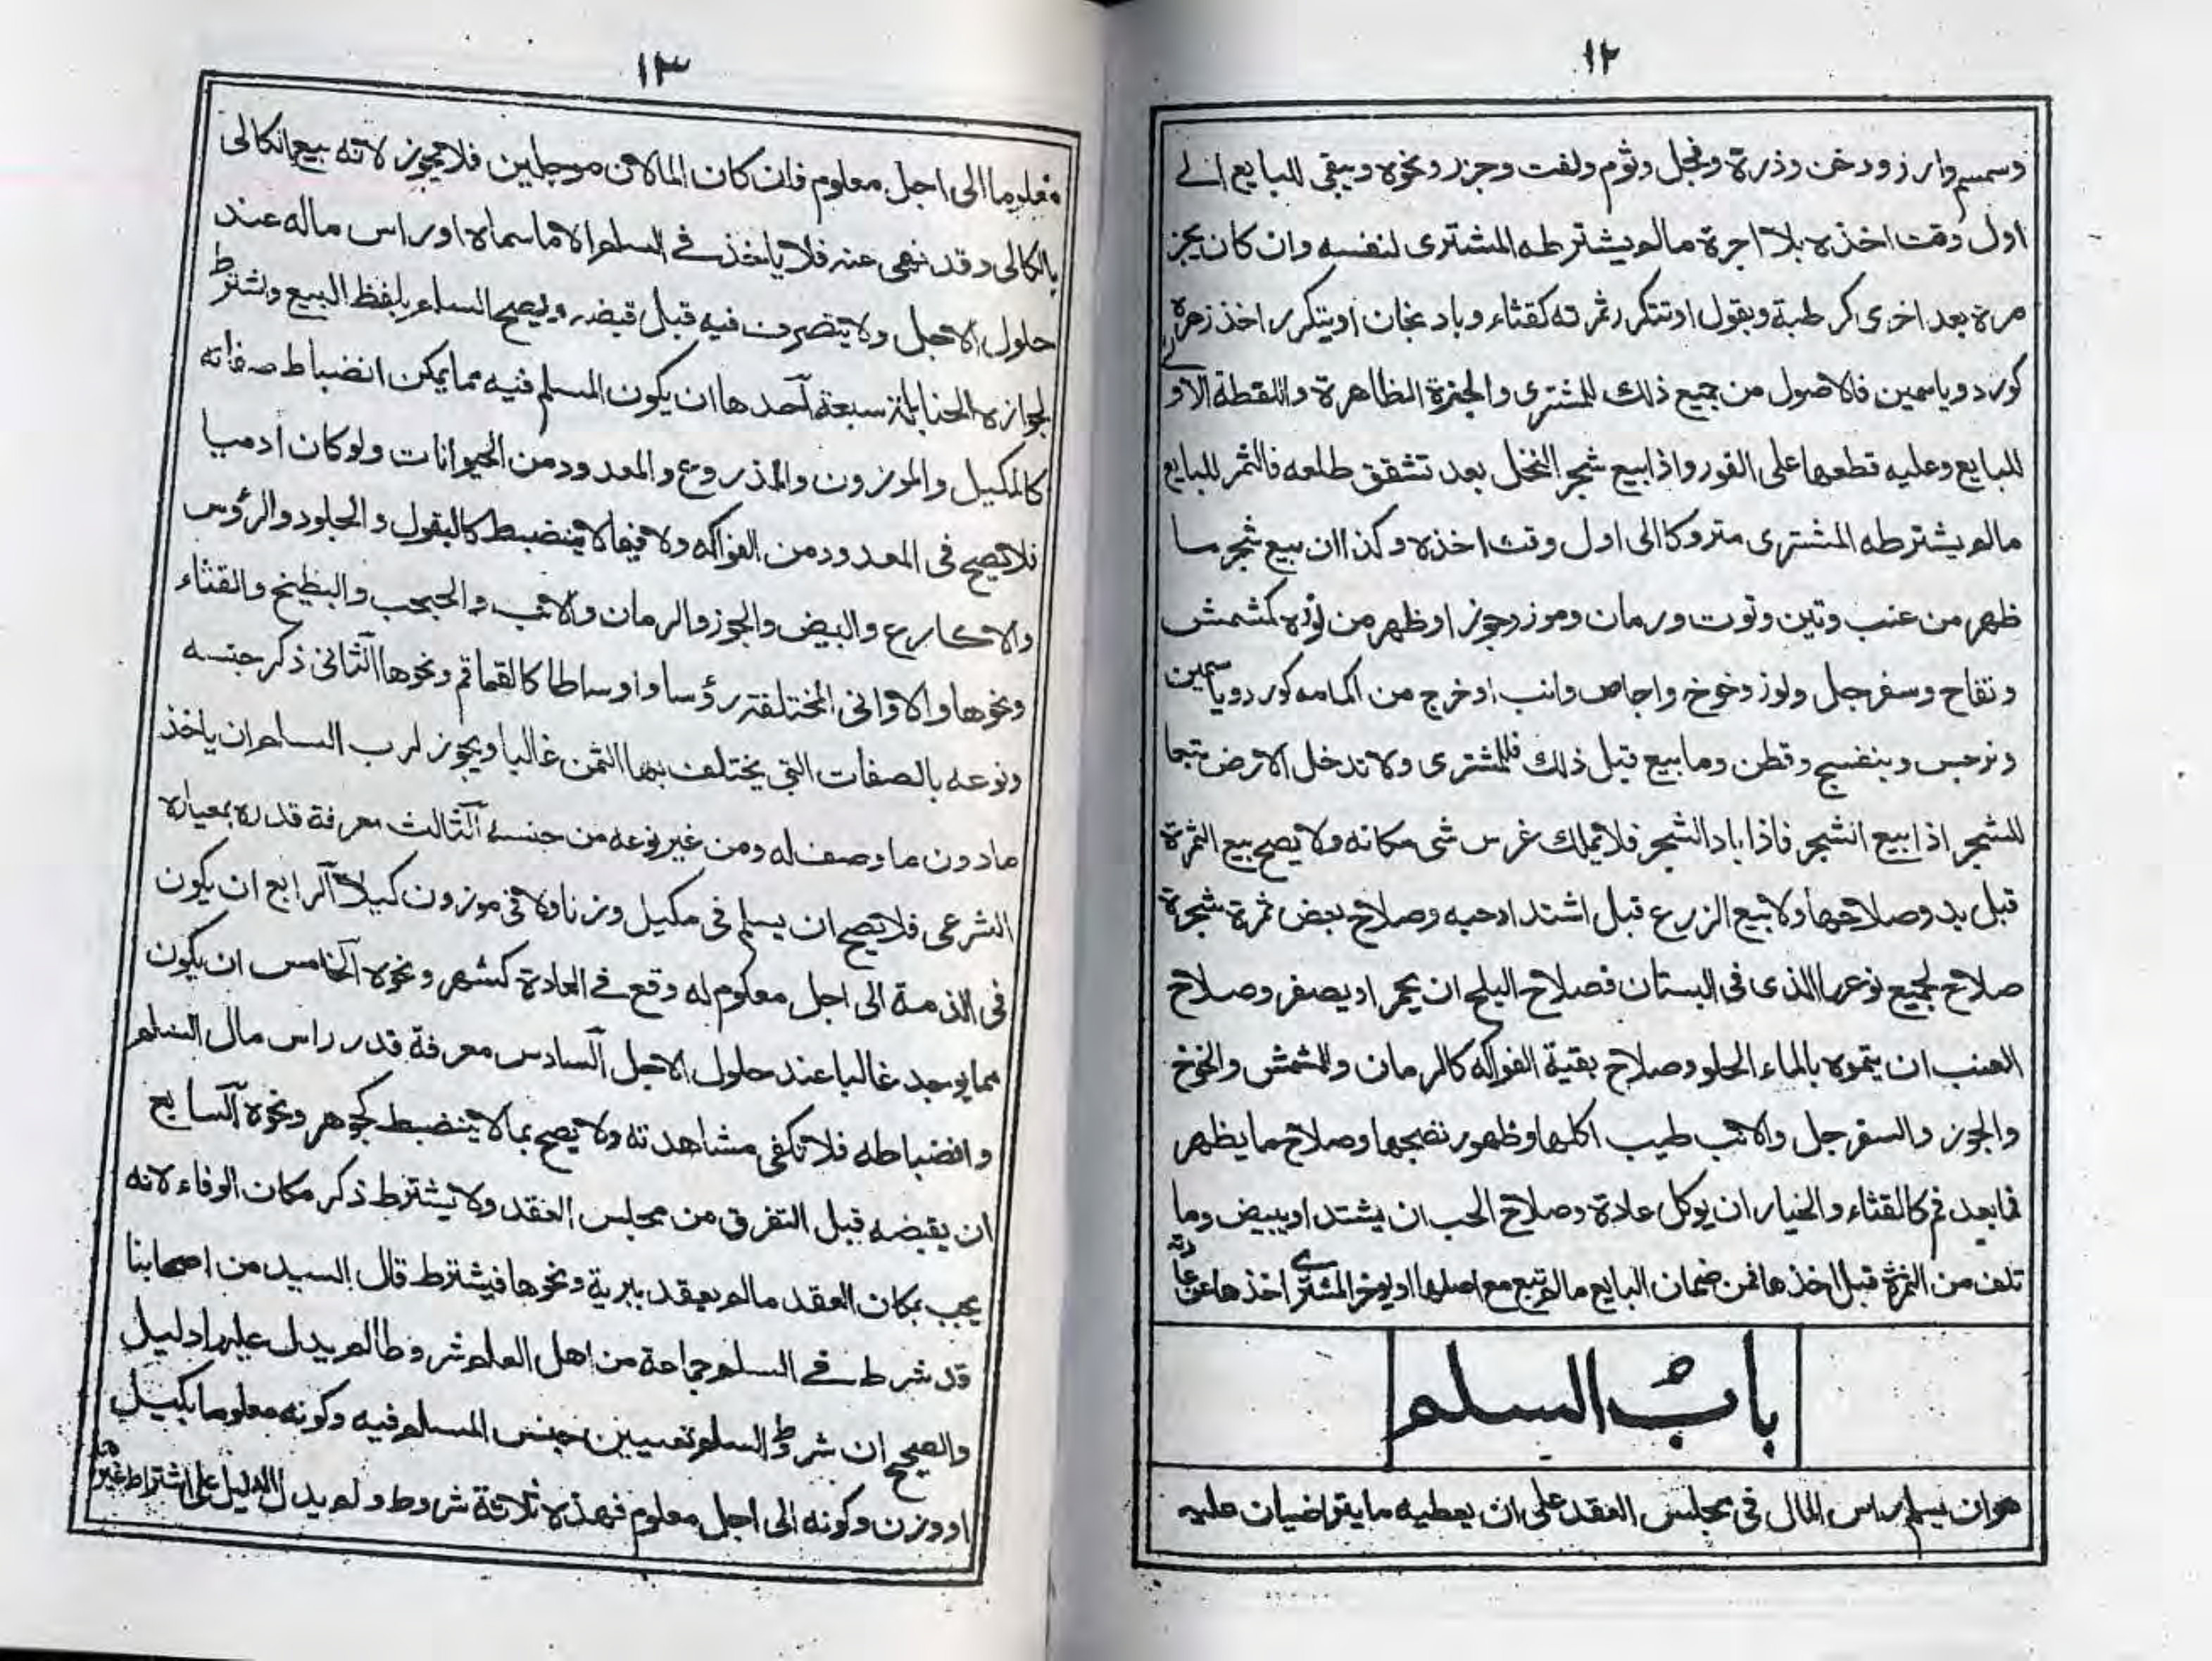 ١٢
وسمسم وارز ودخن وذرة وفجل وثوم ولفت وجزر ونحوه ويبقى للبايع الے
اول وقت اخذه بلا اجرة مالم يشترطه المشترى لنفسه وان كان يجز
مرة بعد اخرى كرطبة وبقول او تتكرر ثمرته كقثاء وبادنجان او يتكرر اخذ زهرة
كورد وياسمين فالاصول من جميع ذلك للمشترى والجزة الظاهرة واللقطة الاولے
للبايع وعليه قطعها على الفور واذا بيع شجر النخل بعد تشقق طلعه فالثمر للبايع
مالم يشترطه المشترى متروكا الى اول وقت اخذه وكذا ان بيع شجر ما
ظهر من عنب وتين وتوت ورمان وموز وجوز او ظهر من نوره كمشمش
وتفاح وسفرجل ولوز وخوخ واجاص وانب او خرج من اكمامه كورد وياسمين
ونرجس وبنفسج وقطن وما بيع قبل ذلك فللمشترى ولا تدخل الارض تبعا
للشجر اذا بيع الشجر فاذا باد الشجر فلا يملك غرس شى مكانه ولا يصح بيع الثمرة
قبل بدو صلاحها ولا بيع الزرع قبل اشتداد حبه وصلاح بعض ثمرة شجرة
صلاح لجميع نوعها الذى فى البستان فصلاح البلح ان يحمر او يصفر وصلاح
العنب ان يتموه بالماء الحلو وصلاح بقية الفواكه كالرمان والمشمش والخوخ
والجوز والسفرجل والانب طيب اكلها وظهور نضجها وصلاح ما يظهر
فما بعد فم كالقثاء والخيار ان يوكل عادة وصلاح الحب ان يشتد او يبيض وما
تلف من الثمرة قبل اخذها فمن ضمان البايع مالم تبع مع اصلها او يوخر المشترے اخذها عن عادته
باب السلم
هو ان يسلم راس المال فى مجلس العقد على ان يعطيه ما يتراضيان عليه
١٣
معلوما الى اجل معلوم فان كان المالان موجلين فلا يجوز لانه بيع الكالى
بالكالى وقد نهى عنه فلا ياخذ فے السلم الا ما سماه او راس ماله عند
حلول الاجل ولا يتصرف فيه قبل قبضه ويصح السلم بلفظ البيع وشترط
لجوازه الحنابلة سبعة آحدها ان يكون المسلم فيه مما يمكن انضباط صفاته
كالمكيل والموزون والمذروع والمعدود من الحيوانات ولو كان ادميا
فلا يصح فى المعدود من الفواكه ولا فيما لا ينضبط كالبقول والجلود والرؤس
والاكارع والبيض والجوز والرمان والانب والحبحب والبطيخ والقثاء
ونحوها والاوانى المختلفة رؤسا واوساطا كالقماقم ونحوها آلثانى ذكر جنسه
ونوعه بالصفات التى يختلف بها الثمن غالبا ويجوز لرب السلم ان ياخذ
مادون ما وصف له ومن غير نوعه من جنسه آلثالث معرفة قدره بمعياره
الشرعى فلا يصح ان يسلم فى مكيل وزنا ولا فى موزون كيلا آلرابع ان يكون
فى الذمة الى اجل معلوم له وقع فے العادة كشهر ونحوه آلخامس ان يكون
مما يوجد غالبا عند حلول الاجل آلسادس معرفة قدر راس مال السلم
وانضباطه فلا تكفى مشاهدته ولا يصح بما لا ينضبط كجوهر ونحوه آلسابع
ان يقبضه قبل التفرق من مجلس العقد ولا يشترط ذكر مكان الوفاء لانه
يجب بمكان العقد مالم يعقد ببرية ونحوها فيشترط قال السيد من اصحابنا
قد شرط فے السلم جماعة من اهل العلم شروطا لم يدل عليها دليل
والصحيح ان شروط السلم تعيين جنس المسلم فيه وكونه معلوما بكيل
او وزن وكونه الى اجل معلوم فهذه ثلاثة شروط ولم يدل الدليل على اشتراط غيرها